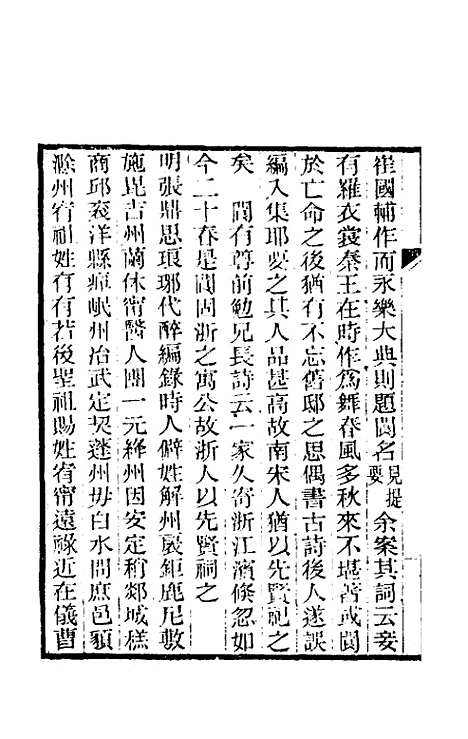 崔國輔作而永樂大典則題閻名見提要余案其詞云妾
有羅衣裳秦王在時作為舞春風多秋來不堪著或閻
於亡命之後猶有不忘舊邸之思偶書古詩後人遂誤
編入集耶要之其人品甚高故南宋人猶以先賢祀之
矣 閻有尊前勉兄長詩云一家久寄浙江濱倏忽如
今二十春是閻固浙之寓公故浙人以先賢祠之
明張鼎思琅琊代醉編錄時人僻姓解州嚴鉅鹿尼數
施毘吉州蘭休甯醫人團一元絳州因安定稍郯城糕
商邱袞洋縣瘴岷州冶武定契蓬州毋白水問庶邑䫉
滁州宥祖姓有有若後聖祖賜姓宥甯遠祿近在儀曹